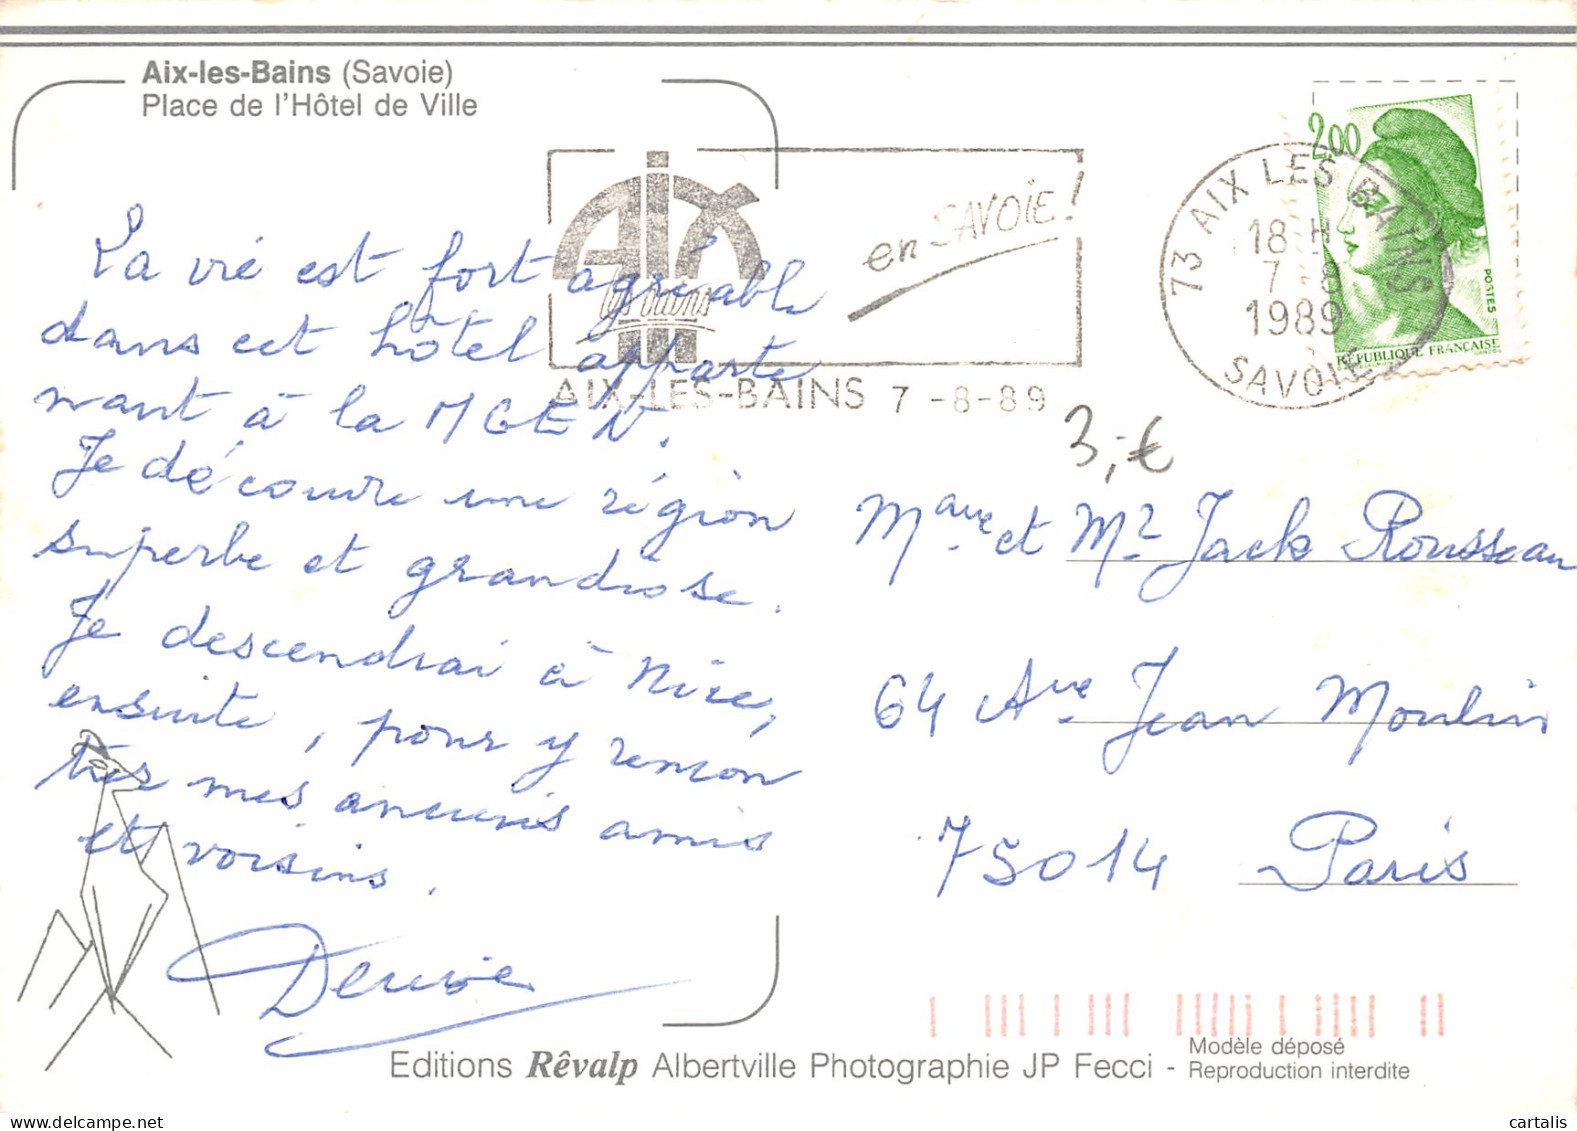 Aix-les-Bains (Savoie)
Place de l'Hôtel de Ville
AIX
les bains
en SAVOIE !
AIX-LES-BAINS 7 -8-89
73 AIX LES BAINS
18 H
7 - 8
1989
SAVOIE
2,00
POSTES
RÉPUBLIQUE FRANÇAISE
3,-€
La vie est fort agréable
dans cet hôtel apparte
nant à la MGEN.
Je découvre une région
superbe et grandiose.
Je descendrai à Nice,
ensuite, pour y rencon
trer mes anciens amis
et voisins.
Denise
Mme et Mr Jack Rousseau
64 Ave Jean Moulin
75014 Paris
Editions Rêvalp Albertville Photographie JP Fecci -
Modèle déposé
Reproduction interdite
cartalis